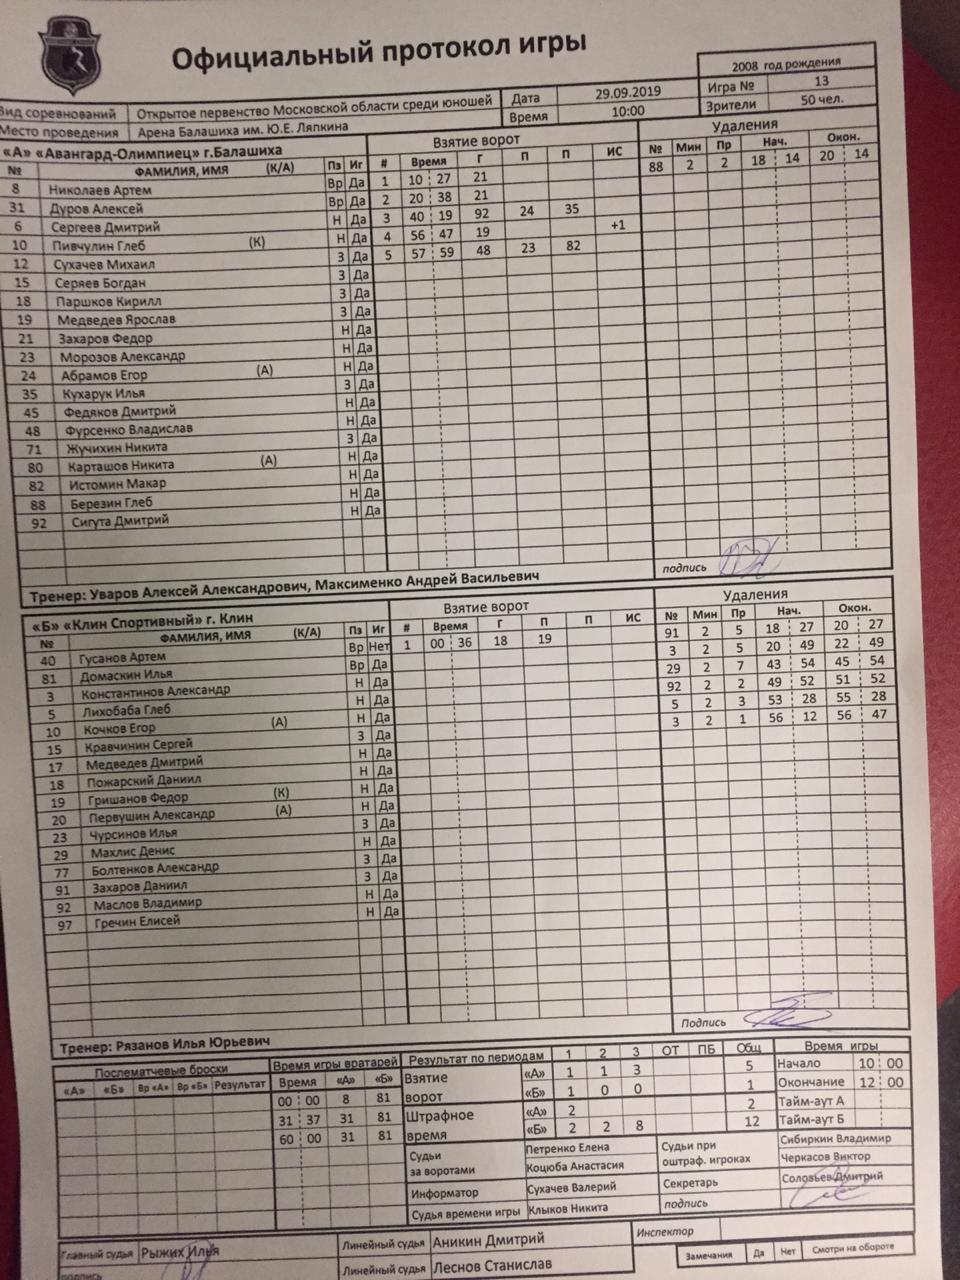 Официальный протокол игры
2008 год рождения
Вид соревнований Открытое первенство Московской области среди юношей Дата 29.09.2019 Игра № 13
Место проведения Арена Балашиха им. Ю.Е. Ляпкина Время 10:00 Зрители 50 чел.
«А» «Авангард-Олимпиец» г.Балашиха Взятие ворот Удаления
№ ФАМИЛИЯ, ИМЯ (К/А) Пз Иг # Время Г П П ИС № Мин Пр Нач. Окон.
8 Николаев Артем Вр Да 1 10 27 21 88 2 2 18 14 20 14
31 Дуров Алексей Вр Да 2 20 38 21
6 Сергеев Дмитрий Н Да 3 40 19 92 24 35
10 Пивчулин Глеб (К) Н Да 4 56 47 19 +1
12 Сухачев Михаил З Да 5 57 59 48 23 82
15 Серяев Богдан З Да
18 Паршков Кирилл З Да
19 Медведев Ярослав З Да
21 Захаров Федор Н Да
23 Морозов Александр Н Да
24 Абрамов Егор (А) Н Да
35 Кухарук Илья З Да
45 Федяков Дмитрий Н Да
48 Фурсенко Владислав Н Да
71 Жучихин Никита З Да
80 Карташов Никита (А) Н Да
82 Истомин Макар Н Да
88 Березин Глеб Н Да
92 Сигута Дмитрий Н Да
подпись
Тренер: Уваров Алексей Александрович, Максименко Андрей Васильевич
«Б» «Клин Спортивный» г. Клин Взятие ворот Удаления
№ ФАМИЛИЯ, ИМЯ (К/А) Пз Иг # Время Г П П ИС № Мин Пр Нач. Окон.
40 Гусанов Артем Вр Нет 1 00 36 18 19 91 2 5 18 27 20 27
81 Домаскин Илья Вр Да 3 2 5 20 49 22 49
3 Константинов Александр Н Да 29 2 7 43 54 45 54
5 Лихобаба Глеб Н Да 92 2 2 49 52 51 52
10 Кочков Егор (А) Н Да 5 2 3 53 28 55 28
15 Кравчинин Сергей З Да 3 2 1 56 12 56 47
17 Медведев Дмитрий Н Да
18 Пожарский Даниил Н Да
19 Гришанов Федор (К) Н Да
20 Первушин Александр (А) Н Да
23 Чурсинов Илья З Да
29 Махлис Денис Н Да
77 Болтенков Александр З Да
91 Захаров Даниил З Да
92 Маслов Владимир Н Да
97 Гречин Елисей Н Да
Подпись
Тренер: Рязанов Илья Юрьевич
Послематчевые броски Время игры вратарей Результат по периодам 1 2 3 ОТ ПБ Общ Время игры
«А» «Б» Вр «А» Вр «Б» Результат Время «А» «Б» Взятие ворот «А» 1 1 3 5 Начало 10 00
00 00 8 81 «Б» 1 0 0 1 Окончание 12 00
31 37 31 81 Штрафное время «А» 2 2 Тайм-аут А
60 00 31 81 «Б» 2 2 8 12 Тайм-аут Б
Судьи за воротами Петренко Елена Судьи при оштраф. игроках Сибиркин Владимир
Коцюба Анастасия Черкасов Виктор
Информатор Сухачев Валерий Секретарь Соловьев Дмитрий
Судья времени игры Клыков Никита подпись
Главный судья Рыжих Илья Линейный судья Аникин Дмитрий Инспектор
подпись Линейный судья Леснов Станислав Замечания Да Нет Смотри на обороте